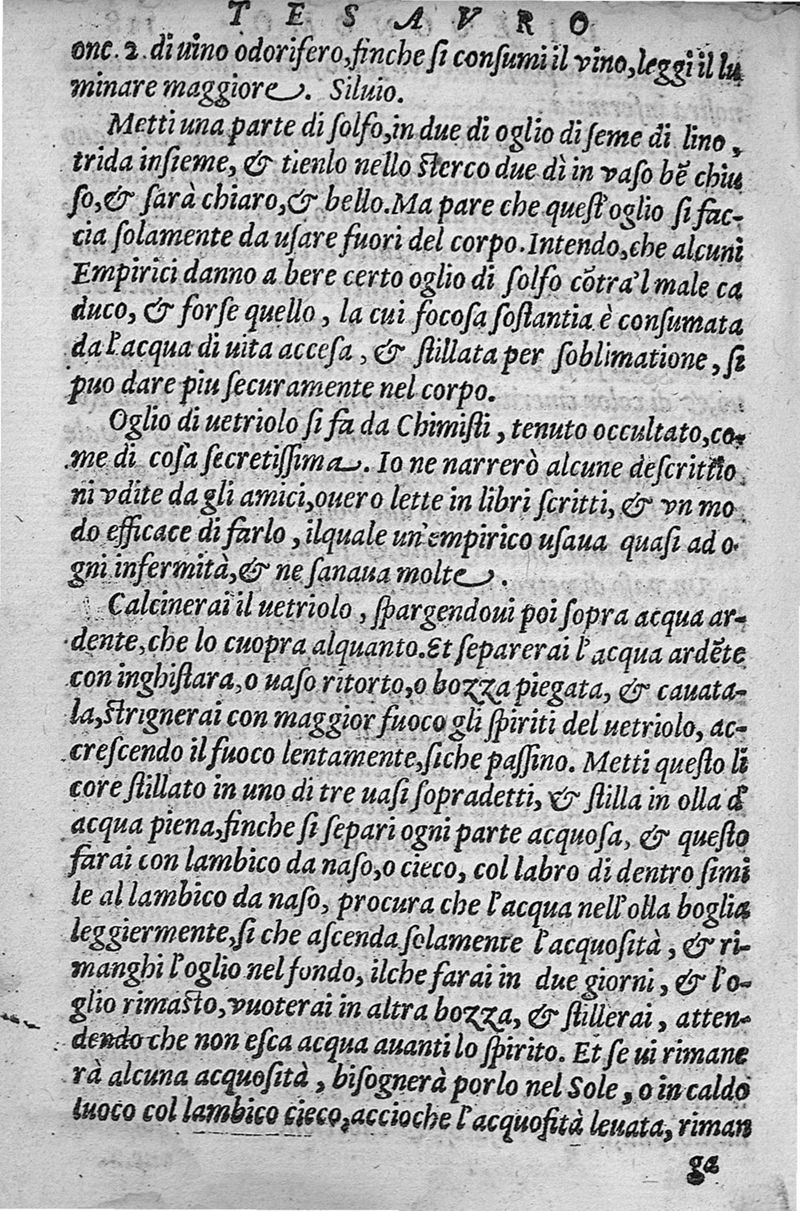 TESAVRO
onc. 2. di uino odorifero, finche si consumi il vino, leggi il lu
minare maggiore. Siluio.
Metti una parte di solfo, in due di oglio di seme di lino,
trida insieme, & tienlo nello sterco due dì in vaso bẽ chiu
so, & sarà chiaro, & bello. Ma pare che quest'oglio si fac-
cia solamente da usare fuori del corpo. Intendo, che alcuni
Empirici danno a bere certo oglio di solfo cõtra'l male ca
duco, & forse quello, la cui focosa sostantia è consumata
da l'acqua di uita accesa, & stillata per soblimatione, si
puo dare piu securamente nel corpo.
Oglio di uetriolo si fa da Chimisti, tenuto occultato, co-
me di cosa secretissima. Io ne narrerò alcune descrittio
ni vdite da gli amici, ouero lette in libri scritti, & vn mo
do efficace di farlo, ilquale un'empirico usaua quasi ad o
gni infermità, & ne sanaua molte.
Calcinerai il uetriolo, spargendoui poi sopra acqua ar-
dente, che lo cuopra alquanto. Et separerai l'acqua ardẽte
con inghistara, o uaso ritorto, o bozza piegata, & cauata-
la, strignerai con maggior fuoco gli spiriti del uetriolo, ac-
crescendo il fuoco lentamente, siche passino. Metti questo li
core stillato in uno di tre uasi sopradetti, & stilla in olla d'
acqua piena, finche si separi ogni parte acquosa, & questo
farai con lambico da naso, o cieco, col labro di dentro simi
le al lambico da naso, procura che l'acqua nell'olla boglia
leggiermente, si che ascenda solamente l'acquosità, & ri-
manghi l'oglio nel fondo, ilche farai in due giorni, & l'o-
glio rimasto, vuoterai in altra bozza, & stillerai, atten-
dendo che non esca acqua auanti lo spirito. Et se ui rimane
rà alcuna acquosità, bisognerà porlo nel Sole, o in caldo
luoco col lambico cieco, accioche l'acquosità leuata, riman
ga